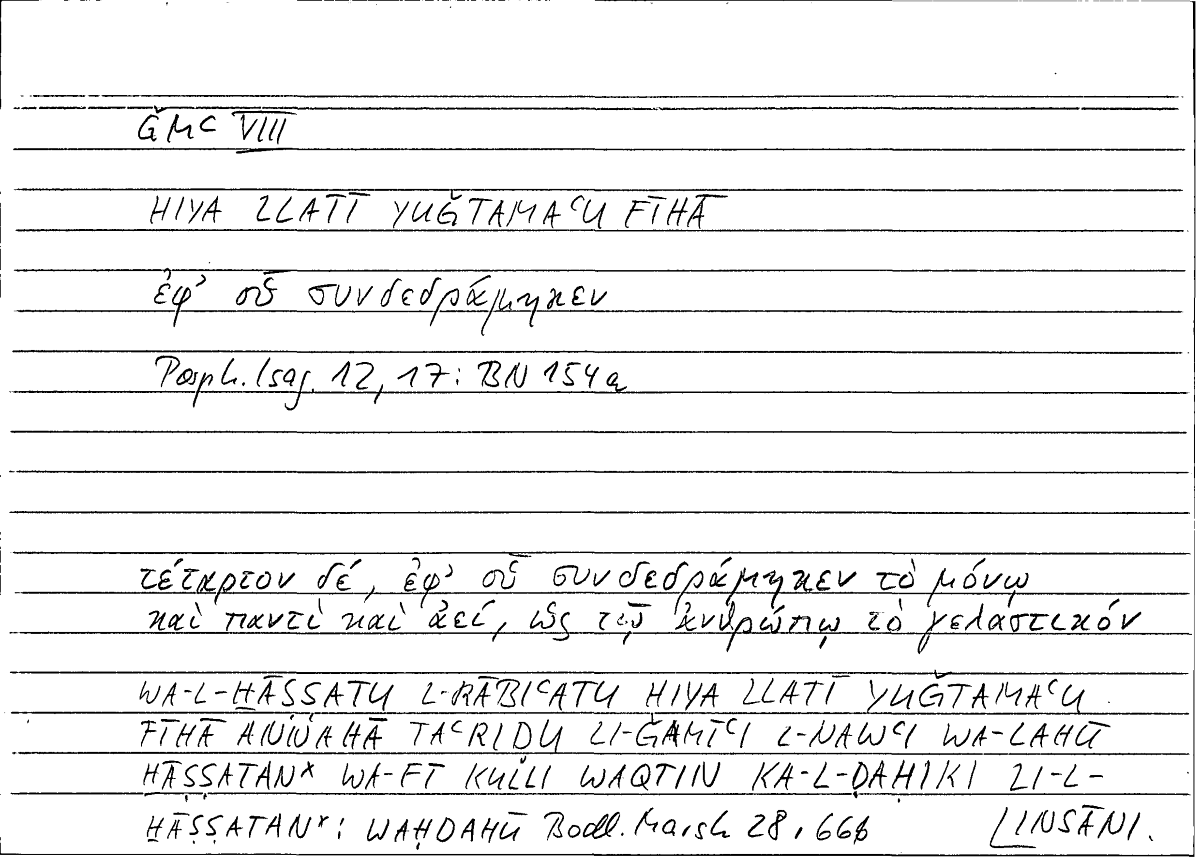 ǦMʿ VIII
HIYA LLATĪ YUǦTAMAʿU FĪHĀ
ἐφ' οὗ συνδεδράμηκεν
Porph. Isag. 12, 17: BN 154a
τέταρτον δέ, ἐφ' οὗ συνδεδράμηκεν τὸ μόνῳ
καὶ παντὶ καὶ ἀεί, ὡς τῷ ἀνθρώπῳ τὸ γελαστικόν
WA-L-ḪĀṢṢATU L-RĀBIʿATU HIYA LLATĪ YUǦTAMAʿU
FĪHĀ ANNAHĀ TAʿRIḌU LI-ǦAMĪʿI L-NAWʿI WA-LAHŪ
ḪĀṢṢATAN× WA-FĪ KULLI WAQTIN KA-L-ḌAḤIKI LI-L-
ḪĀṢṢATAN×: WAḤDAHŪ Bodl. Marsh 28, 66b LINSĀNI.